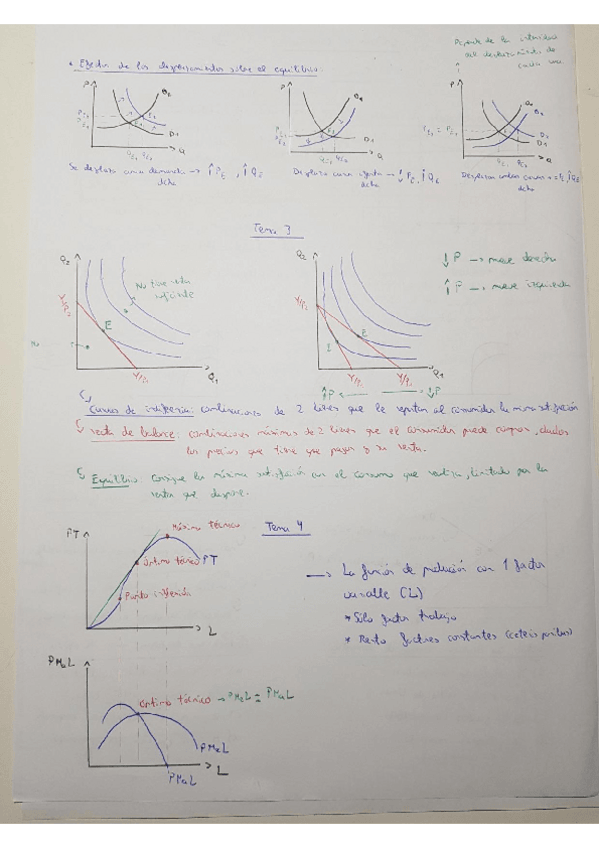 Depende de la intensidad
del desplazamiento de
cada una
* Efectos de los desplazamientos sobre el equilibrio:
P
O1
D1
Q
P
O1
D1
Q
P
O1
D2
D1
Q
Se desplaza curva demanda → ↑PE, ↑QE
dcha
Desplaza curva oferta → ↓PE, ↑QE
dcha
Desplazan ambas curvas
dcha
Tema 3
Q2
No tiene renta
suficiente
Y/P2
E
Y/P1
Q1
Q2
Y/P2
E
Y/P1
Y/P1
Q1
↑P ← → ↓P
↓P → mueve derecha
↑P → mueve izquierda
Curvas de indiferencia: combinaciones de 2 bienes que le reportan al consumidor la misma satisfacción
recta de balance: combinaciones máximas de 2 bienes que el consumidor puede comprar, dados
los precios que tiene que pagar y su renta.
Equilibrio: Consigue la máxima satisfacción con el consumo que realiza, limitado por la
renta que dispone.
Tema 4
PT
Máximo técnico
Óptimo técnico
PT
Punto inflexión
L
→ La función de producción con 1 factor
variable (L)
* Sólo factor trabajo
* Resto factores constantes (ceteris paribus)
PMaL
óptimo técnico → PMeL = PMaL
PMeL
L
PMaL